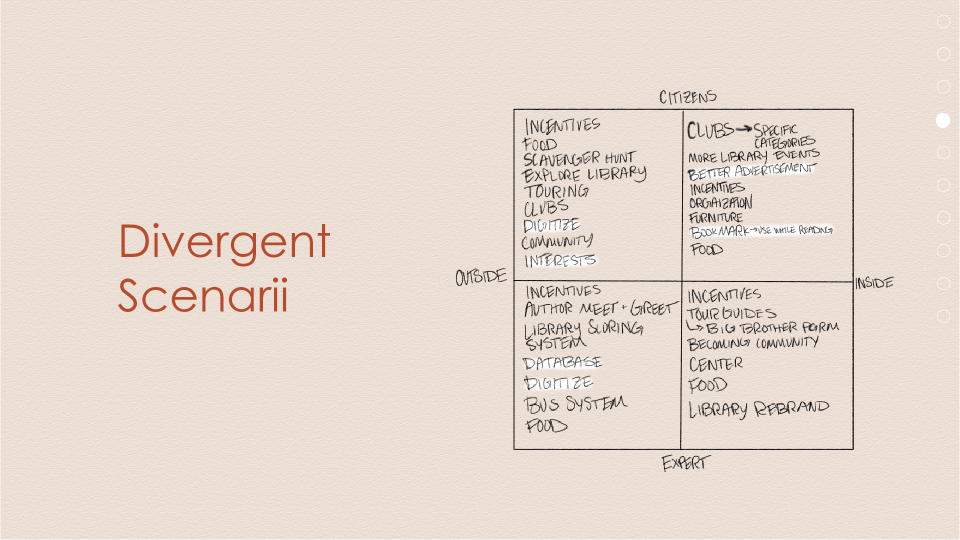 Divergent
Scenarii
CITIZENS
INCENTIVES
FOOD
SCAVENGER HUNT
EXPLORE LIBRARY
TOURING
CLUBS
DIGITIZE
COMMUNITY
INTERESTS
CLUBS → SPECIFIC
CATEGORIES
MORE LIBRARY EVENTS
BETTER ADVERTISEMENT
INCENTIVES
ORGAIZATION
FURNITURE
BOOKMARK → USE WHILE READING
FOOD
OUTSIDE
INSIDE
INCENTIVES
AUTHOR MEET + GREET
LIBRARY SCORING
SYSTEM
DATABASE
DIGITIZE
BUS SYSTEM
FOOD
INCENTIVES
TOUR GUIDES
↳ BIG BROTHER PROGRAM
BECOMING COMMUNITY
CENTER
FOOD
LIBRARY REBRAND
EXPERT